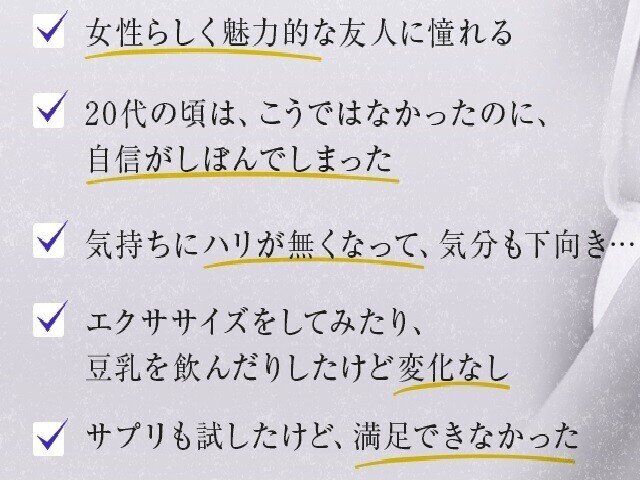 女性らしく魅力的な友人に憧れる
20代の頃は、こうではなかったのに、
自信がしぼんでしまった
気持ちにハリが無くなって、気分も下向き…
エクササイズをしてみたり、
豆乳を飲んだりしたけど変化なし
サプリも試したけど、満足できなかった